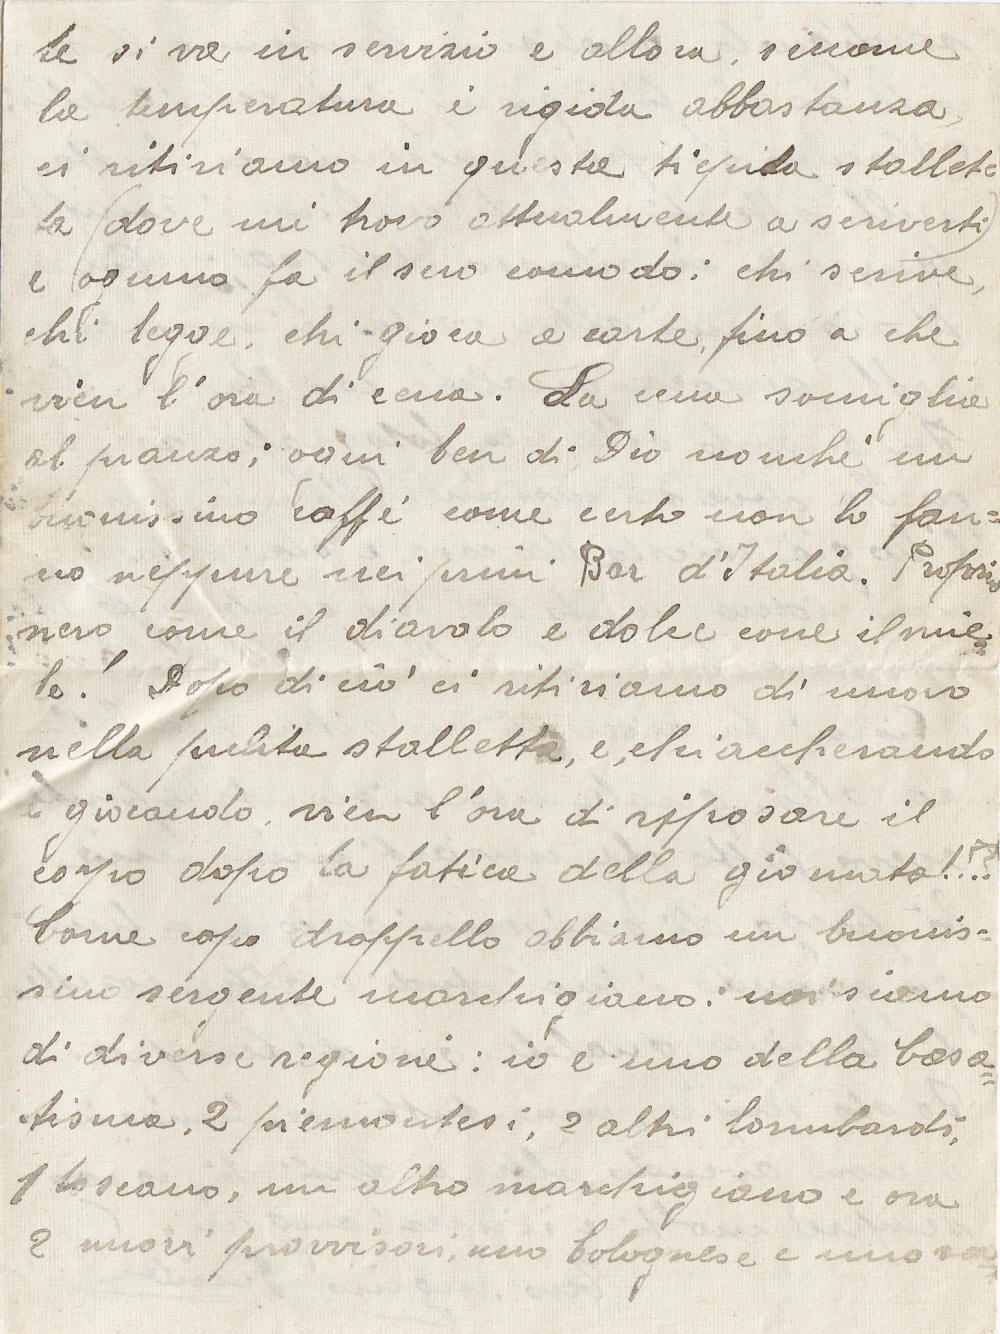 te si va in servizio e allora, siccome
la temperatura è rigida abbastanza,
ci ritiriamo in questa tiepida stallet=
ta (dove mi trovo attualmente a scriverti)
e ognuno fa il suo comodo: chi scrive,
chi legge, chi gioca a carte, fino a che
vien l'ora di cena. La cena somiglia
al pranzo; ogni ben di Dio nonché un
buonissimo caffé come certo non lo fan=
no neppure nei primi Bar d'Italia. Proprio
nero come il diavolo e dolce come il mie=
le! Dopo di ciò ci ritiriamo di nuovo
nella pulita stalletta, e, chiaccherando
e giocando, vien l'ora di riposare il
corpo dopo la fatica della giornata!!??
Come capo drappello abbiamo un buonis=
simo sergente marchigiano: noi siamo
di diverse regioni: io e uno della Casa=
tisma, 2 piemontesi, 2 altri lombardi,
1 toscano, un altro marchigiano e ora
2 nuovi provvisori, uno bolognese e uno